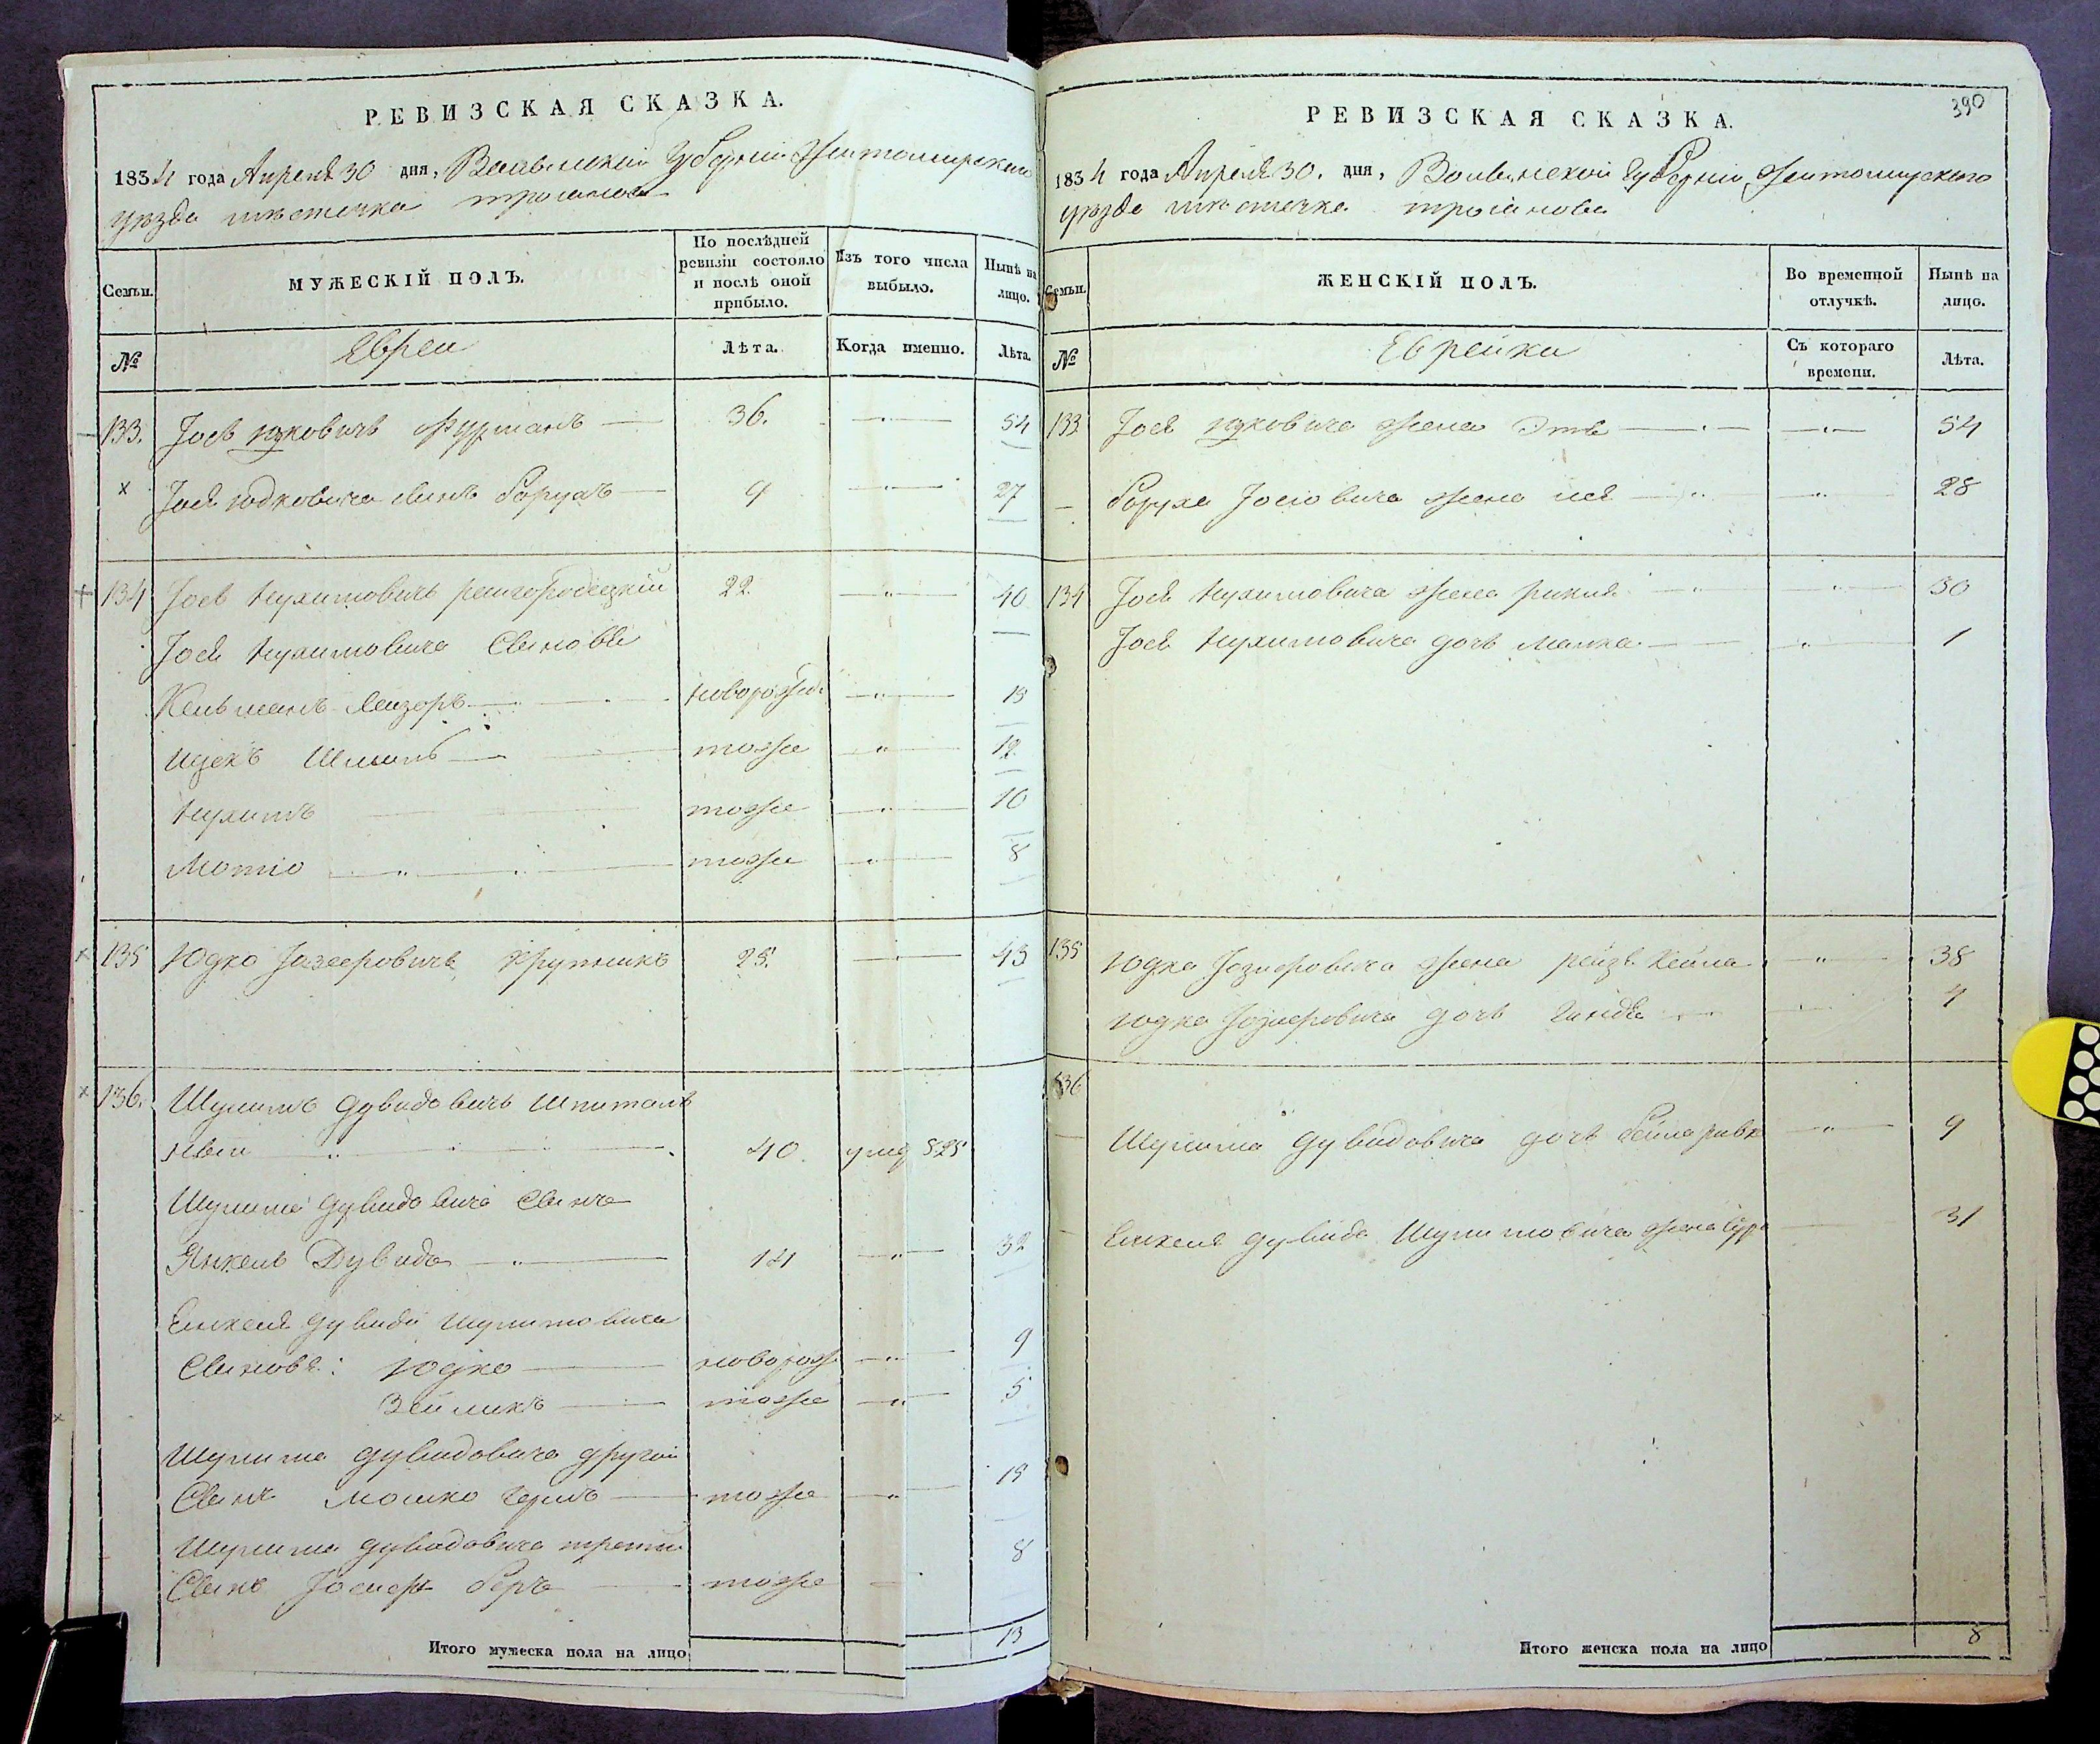 РЕВИЗСКАЯ СКАЗКА.
1834 года Апреля 30 дня, Волынской Губерніи Житомирского
уезда местечка троянова
Семьи.
МУЖЕСКІЙ ПОЛЪ.
По послѣдней ревизіи состояло и послѣ оной прибыло.
Изъ того числа выбыло.
Нынѣ на лицо.
№
Евреи
Лѣта.
Когда именно.
Лѣта.
133. Иось юдковичъ Фурманъ 36. 54
Иося юдковича сынъ борухъ 9 27
134 Иось Нухимовичъ 22 40
Иося Нухимовича Сыновья
Кельманъ Лейзоръ новорожд. 15
Ицекъ Шмиль тоже 12
Нухимъ тоже 10
Мотіо тоже 8
135 Юдко Іозееровичъ Крупникъ 25. 43
136. Шулимъ дувидовичъ Шпиталь
ный 40 умер 825
Шулима дувидовича Сынъ
Янкель Дувидъ 14 32
Енкеля дувида шулимовича
Сыновья: Юдко новорож 9
Зейликъ тоже 5
Шулима дувидовича другой
Сынъ Мошко Герщъ тоже 15
Шулима дувидовича третій
Сынъ Іосиф беръ тоже 8
Итого мужеска пола на лицо 13
390
РЕВИЗСКАЯ СКАЗКА.
1834 года Апреля 30. дня, Волынской Губерніи Житомирского
уезда местечка троянова
Семьи.
ЖЕНСКІЙ ПОЛЪ.
Во временной отлучкѣ.
Нынѣ на лицо.
№
Еврейки
Съ котораго времени.
Лѣта.
133 Иося юдковича жена Этя 54
боруха Иосіовича жена 28
134 Иося Нухимовича жена 30
Иося Нухимовича дочь Малка 1
135 Юдка Іозиеровича жена рейзя Кейла 38
юдка Іозиеровича дочь Гиндя 4
136
Шулима дувидовича дочь бейла ривк 9
Енкеля дувида Шулимовича жена сура 31
Итого женска пола на лицо 8